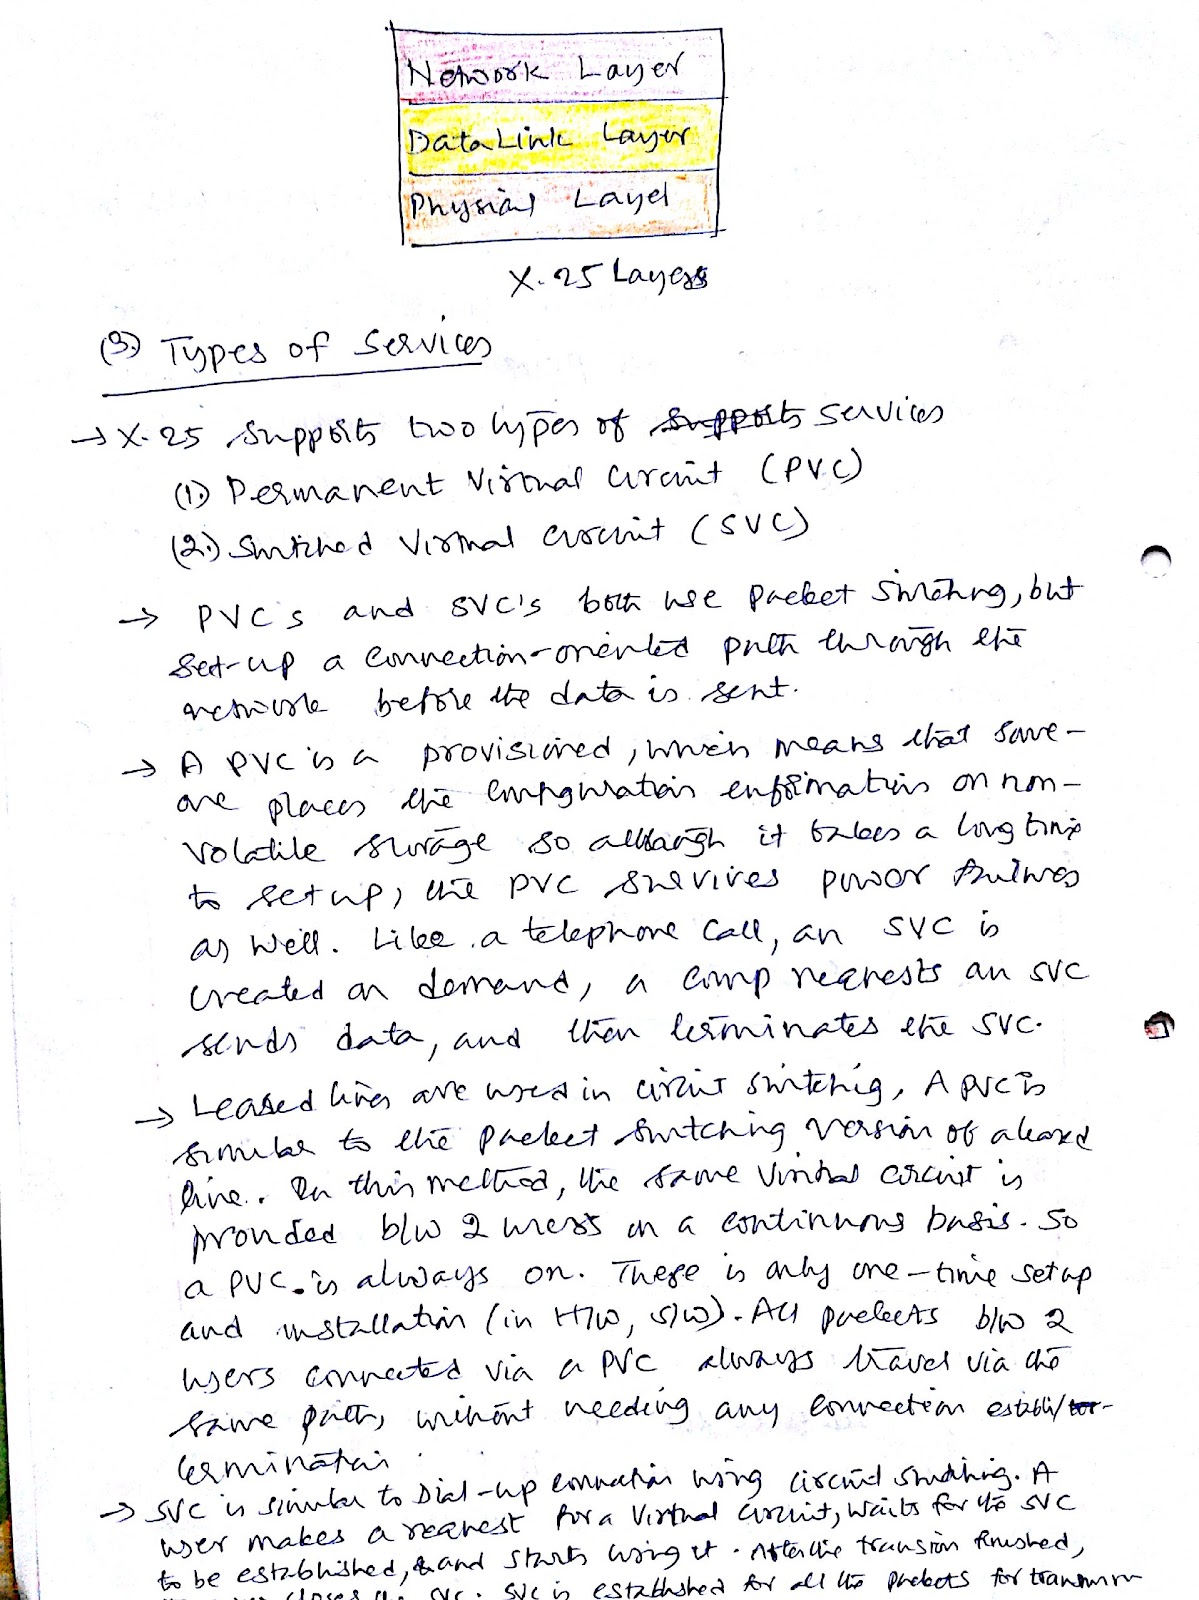 Network Layer
DataLink Layer
Physial Layer
X.25 Layers
(3.) Types of Services
→ X.25 supports two types of supports services
(1.) Permanent Virtual Circuit (PVC)
(2.) Switched Virtual circuit (SVC)
→ PVC's and SVC's both use packet switching, but
set-up a connection-oriented path through the
network before the data is sent.
→ A PVC is a provisioned, which means that some-
one places the configuration information on non-
volatile storage so although it takes a long time
to set up, the PVC survives power failures
as well. Like a telephone call, an SVC is
created on demand, a comp requests an SVC
sends data, and then terminates the SVC.
→ Leased lines are used in circuit switching, A PVC is
similar to the packet switching version of a leased
line. In this method, the same virtual circuit is
provided b/w 2 users on a continuous basis. So
a PVC is always on. There is only one-time setup
and installation (in H/W, S/W). All packets b/w 2
users connected via a PVC always travel via the
same path, without needing any connection establi/ter-
termination.
→ SVC is similar to Dial-up connection using circuit switching. A
user makes a request for a virtual circuit, waits for the SVC
to be established, & and starts using it. After the transion finished,
closes the SVC. SVC is established for all the packets for